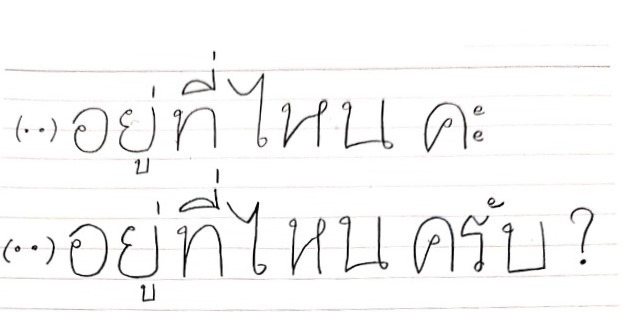 (..) อยู่ที่ไหน คะ
(..) อยู่ที่ไหน ครับ ?